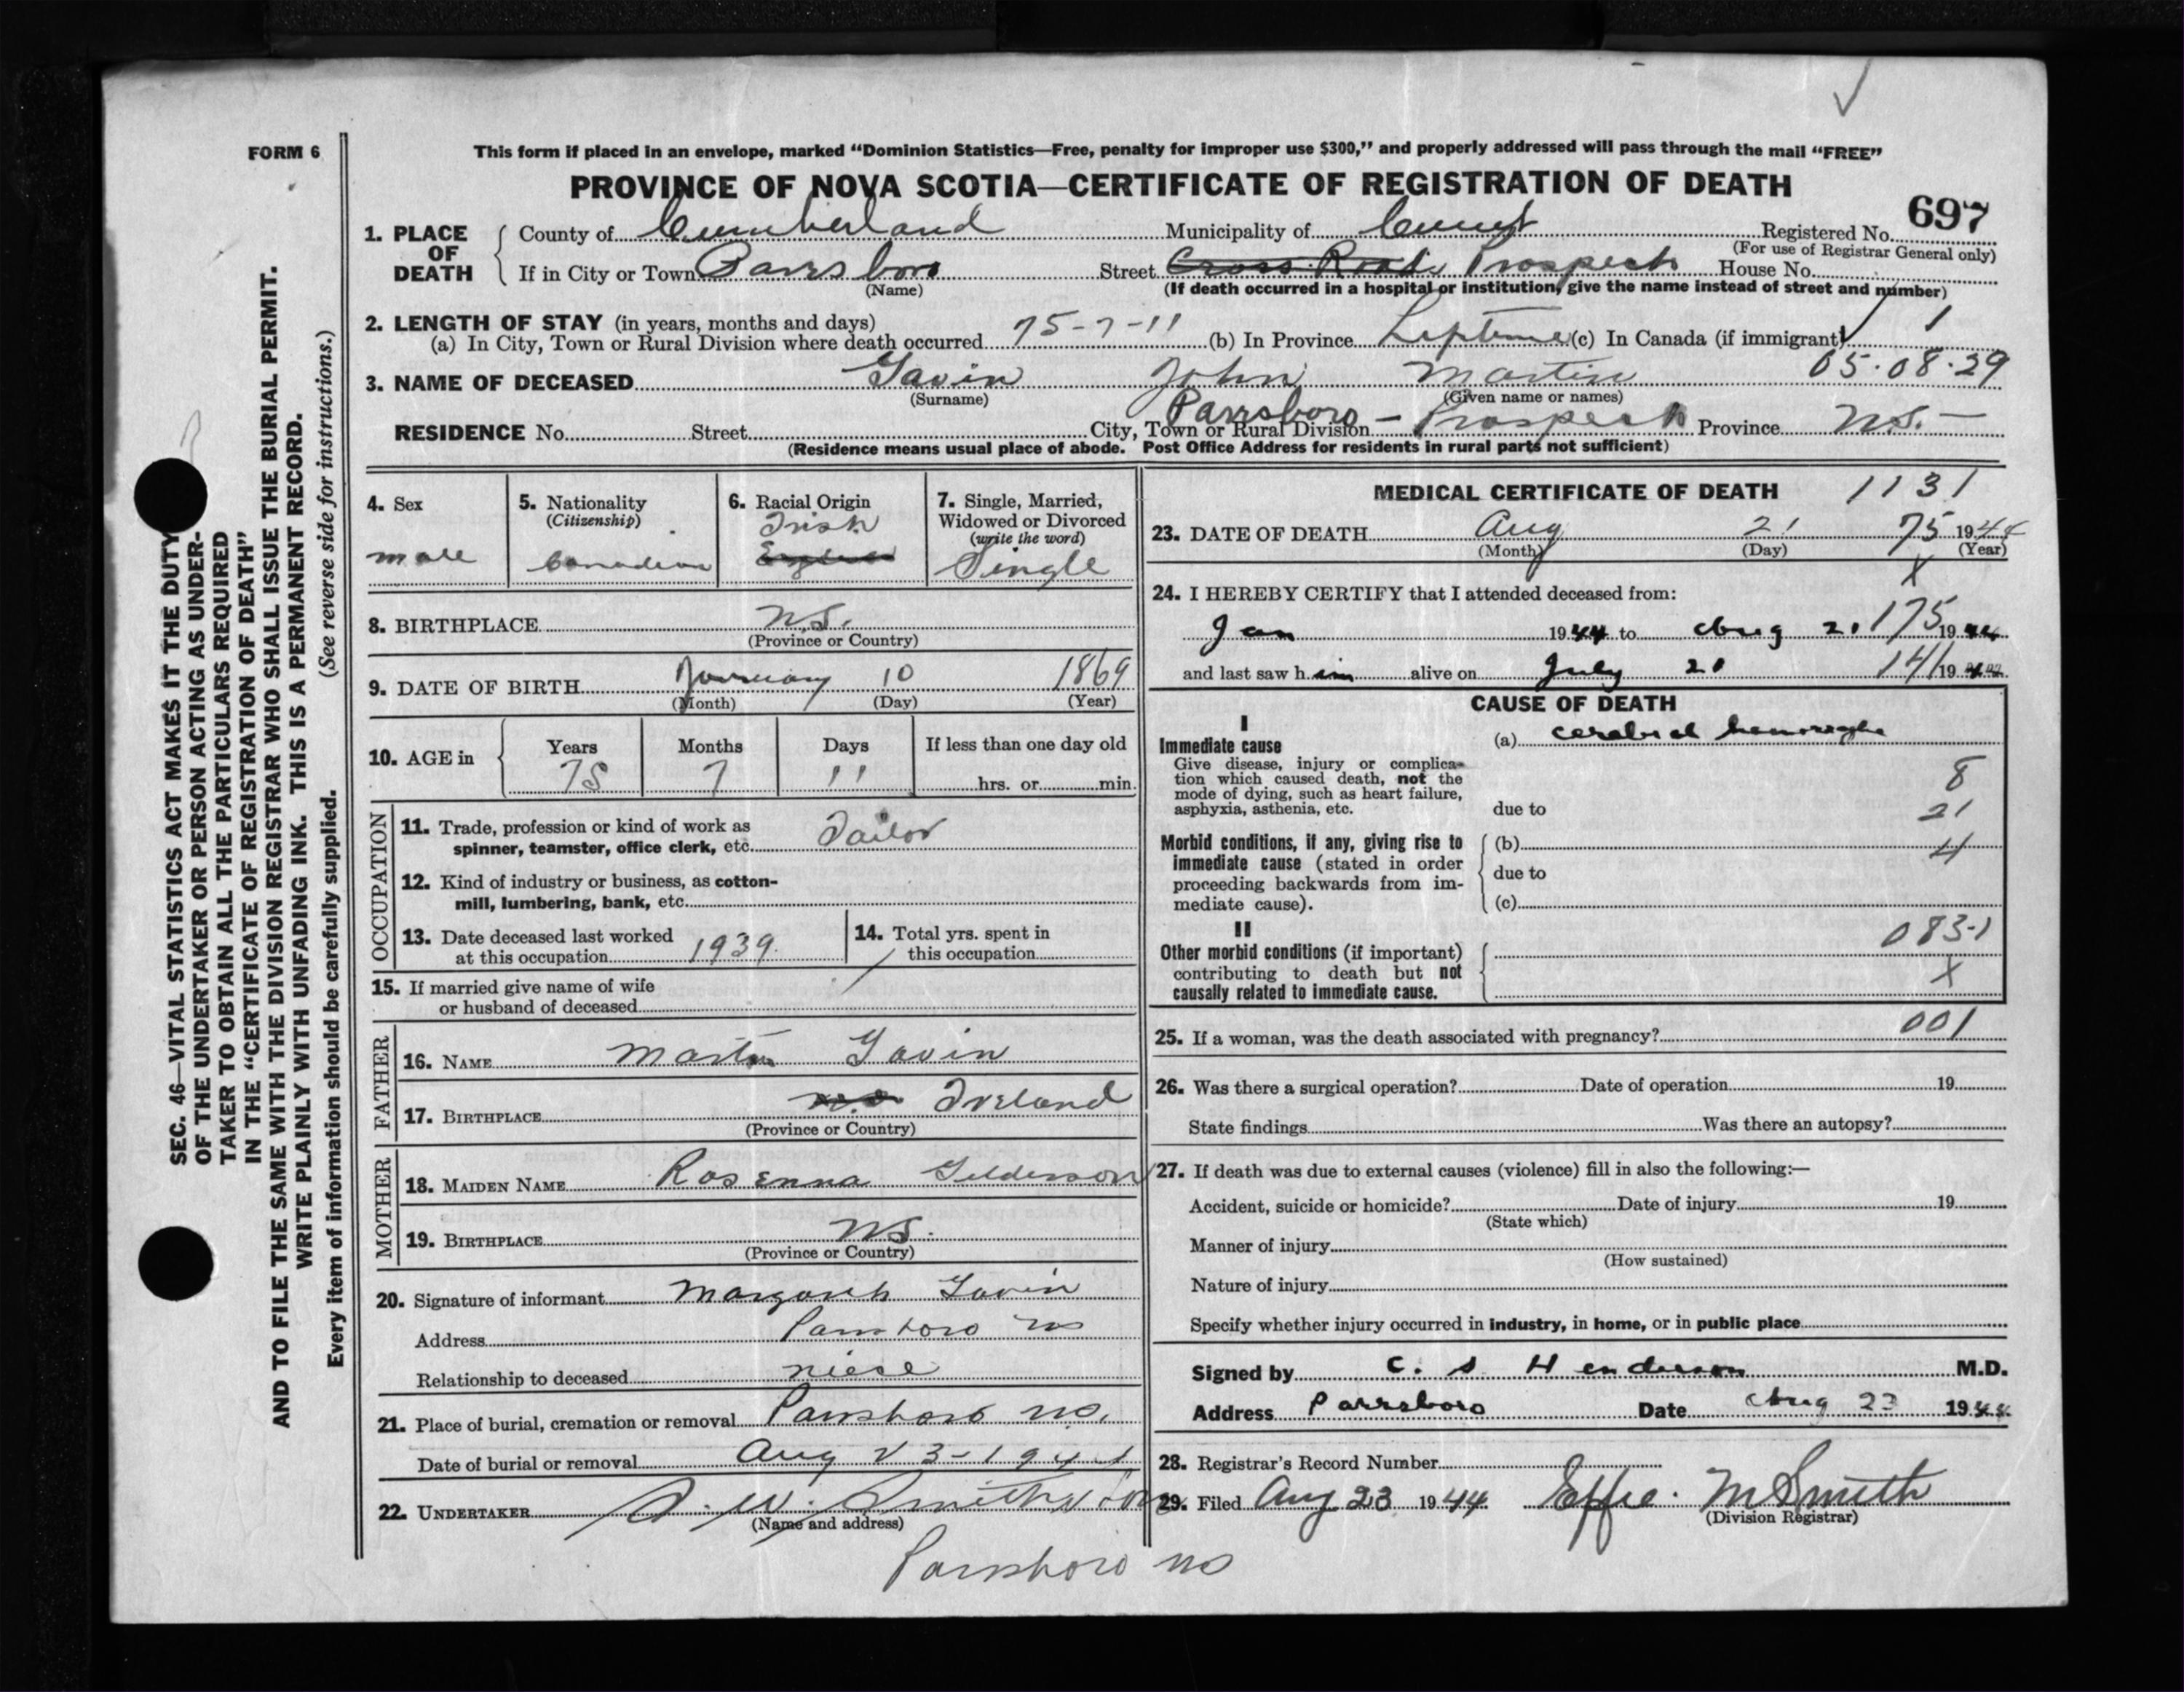 FORM 6
This form if placed in an envelope, marked “Dominion Statistics—Free, penalty for improper use $300,” and properly addressed will pass through the mail “FREE”
PROVINCE OF NOVA SCOTIA—CERTIFICATE OF REGISTRATION OF DEATH
697
1. PLACE OF DEATH County of Cumberland Municipality of Registered No.
(For use of Registrar General only)
If in City or Town Parrsboro Street Cross Roads Prospect House No.
(Name) (If death occurred in a hospital or institution, give the name instead of street and number)
2. LENGTH OF STAY (in years, months and days)
(a) In City, Town or Rural Division where death occurred 75-7-11 (b) In Province Liptime (c) In Canada (if immigrant) 1
05·08·29
3. NAME OF DECEASED Gavin John Martin
(Surname) (Given name or names)
RESIDENCE No. Street City, Town or Rural Division Parrsboro – Prospect Province N.S. –
(Residence means usual place of abode. Post Office Address for residents in rural parts not sufficient)
4. Sex
male
5. Nationality
(Citizenship)
Canadian
6. Racial Origin
Irish
English
7. Single, Married,
Widowed or Divorced
(write the word)
Single
8. BIRTHPLACE N.S.
(Province or Country)
9. DATE OF BIRTH January 10 1869
(Month) (Day) (Year)
10. AGE in Years Months Days If less than one day old
75 7 11 hrs. or min.
OCCUPATION
11. Trade, profession or kind of work as
spinner, teamster, office clerk, etc. Tailor
12. Kind of industry or business, as cotton-
mill, lumbering, bank, etc.
13. Date deceased last worked
at this occupation 1939.
14. Total yrs. spent in
this occupation
15. If married give name of wife
or husband of deceased
FATHER
16. NAME Martin Gavin
17. BIRTHPLACE N.S. Ireland
(Province or Country)
MOTHER
18. MAIDEN NAME Rosenna Gilderson
19. BIRTHPLACE N.S.
(Province or Country)
20. Signature of informant Margaret Gavin
Address Parrsboro NS
Relationship to deceased niese
21. Place of burial, cremation or removal Parrsboro NS.
Date of burial or removal Aug 23-1944
22. UNDERTAKER W. Smith & Son
(Name and address)
Parrsboro NS
MEDICAL CERTIFICATE OF DEATH 1131
23. DATE OF DEATH Aug 21 75 1944
(Month) (Day) (Year)
X
24. I HEREBY CERTIFY that I attended deceased from:
Jan 1944 to Aug 21 175 1944
and last saw him alive on July 21 141 1944
CAUSE OF DEATH
I
Immediate cause (a) cerebral hemorraghe
Give disease, injury or complica-
tion which caused death, not the
mode of dying, such as heart failure,
asphyxia, asthenia, etc. due to
8
21
4
Morbid conditions, if any, giving rise to
immediate cause (stated in order
proceeding backwards from im-
mediate cause).
(b)
due to
(c)
II
083-1
Other morbid conditions (if important)
contributing to death but not
causally related to immediate cause.
X
25. If a woman, was the death associated with pregnancy? 001
26. Was there a surgical operation? Date of operation 19
State findings Was there an autopsy?
27. If death was due to external causes (violence) fill in also the following:—
Accident, suicide or homicide? Date of injury 19
(State which)
Manner of injury
(How sustained)
Nature of injury
Specify whether injury occurred in industry, in home, or in public place
Signed by C. S. Henderson M.D.
Address Parrsboro Date Aug 23 1944
28. Registrar's Record Number
29. Filed Aug 23 1944 Effie. M Smith
(Division Registrar)
SEC. 46—VITAL STATISTICS ACT MAKES IT THE DUTY
OF THE UNDERTAKER OR PERSON ACTING AS UNDER-
TAKER TO OBTAIN ALL THE PARTICULARS REQUIRED
IN THE “CERTIFICATE OF REGISTRATION OF DEATH”
AND TO FILE THE SAME WITH THE DIVISION REGISTRAR WHO SHALL ISSUE THE BURIAL PERMIT.
WRITE PLAINLY WITH UNFADING INK. THIS IS A PERMANENT RECORD.
Every item of information should be carefully supplied. (See reverse side for instructions.)